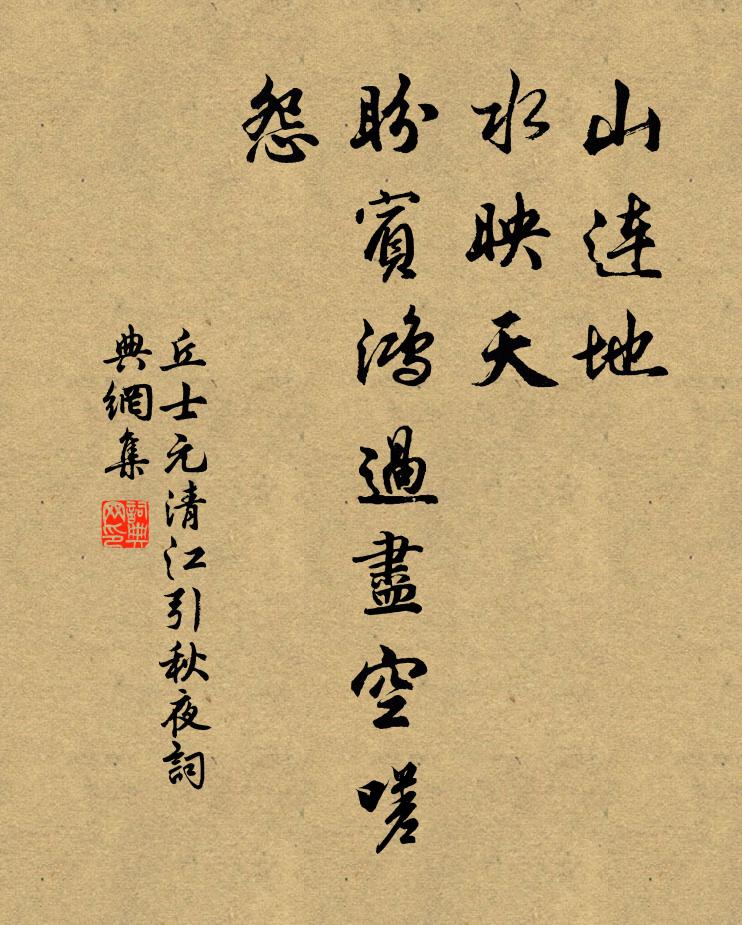 山連地
水映天
盼賓鴻過盡空嗟
怨
丘士元清江引秋夜詞
典網集
詞典網印